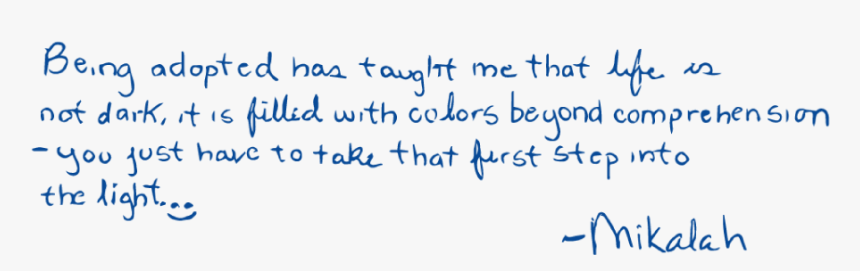 Being adopted has taught me that life is
not dark, it is filled with colors beyond comprehension
- you just have to take that first step into
the light...
-Mikalah